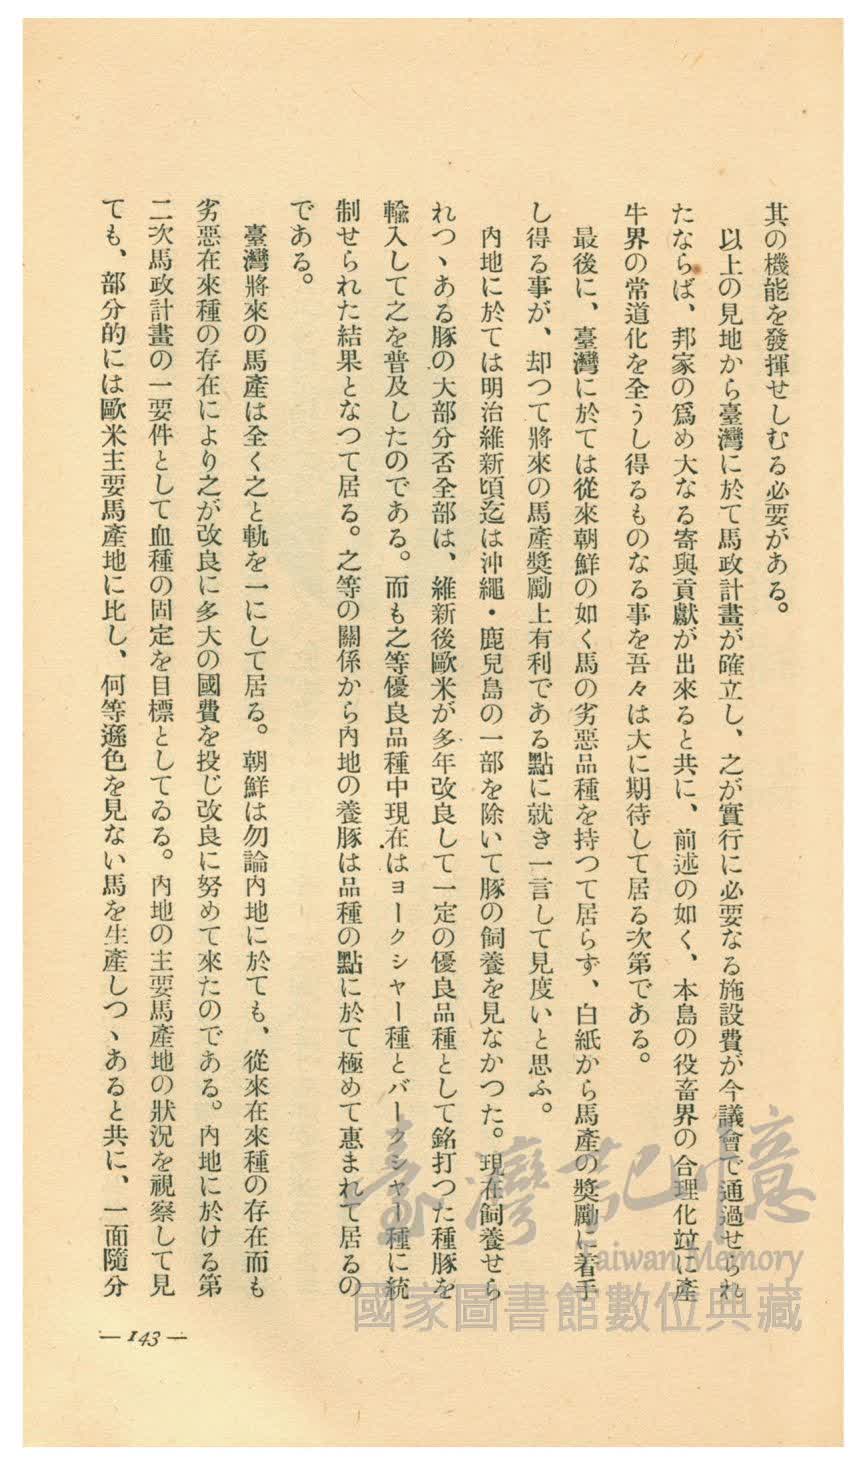 其の機能を發揮せしむる必要がある。
以上の見地から臺灣に於て馬政計畫が確立し、之が實行に必要なる施設費が今議會で通過せられ
たならば、邦家の爲め大なる寄與貢獻が出來ると共に、前述の如く、本島の役畜界の合理化竝に產
牛界の常道化を全うし得るものなる事を吾々は大に期待して居る次第である。
最後に、臺灣に於ては從來朝鮮の如く馬の劣惡品種を持つて居らず、白紙から馬產の獎勵に着手
し得る事が、却つて將來の馬產獎勵上有利である點に就き一言して見度いと思ふ。
內地に於ては明治維新頃迄は沖繩・鹿兒島の一部を除いて豚の飼養を見なかつた。現在飼養せら
れつヽある豚の大部分否全部は、維新後歐米が多年改良して一定の優良品種として銘打つた種豚を
輸入して之を普及したのである。而も之等優良品種中現在はヨークシャー種とバークシャー種に統
制せられた結果となつて居る。之等の關係から內地の養豚は品種の點に於て極めて惠まれて居るの
である。
臺灣將來の馬產は全く之と軌を一にして居る。朝鮮は勿論內地に於ても、從來在來種の存在而も
劣惡在來種の存在により之が改良に多大の國費を投じ改良に努めて來たのである。內地に於ける第
二次馬政計畫の一要件として血種の固定を目標としてゐる。內地の主要馬產地の狀況を視察して見
ても、部分的には歐米主要馬產地に比し、何等遜色を見ない馬を生產しつヽあると共に、一面隨分
—143—
臺灣記憶
Taiwan Memory
國家圖書館數位典藏